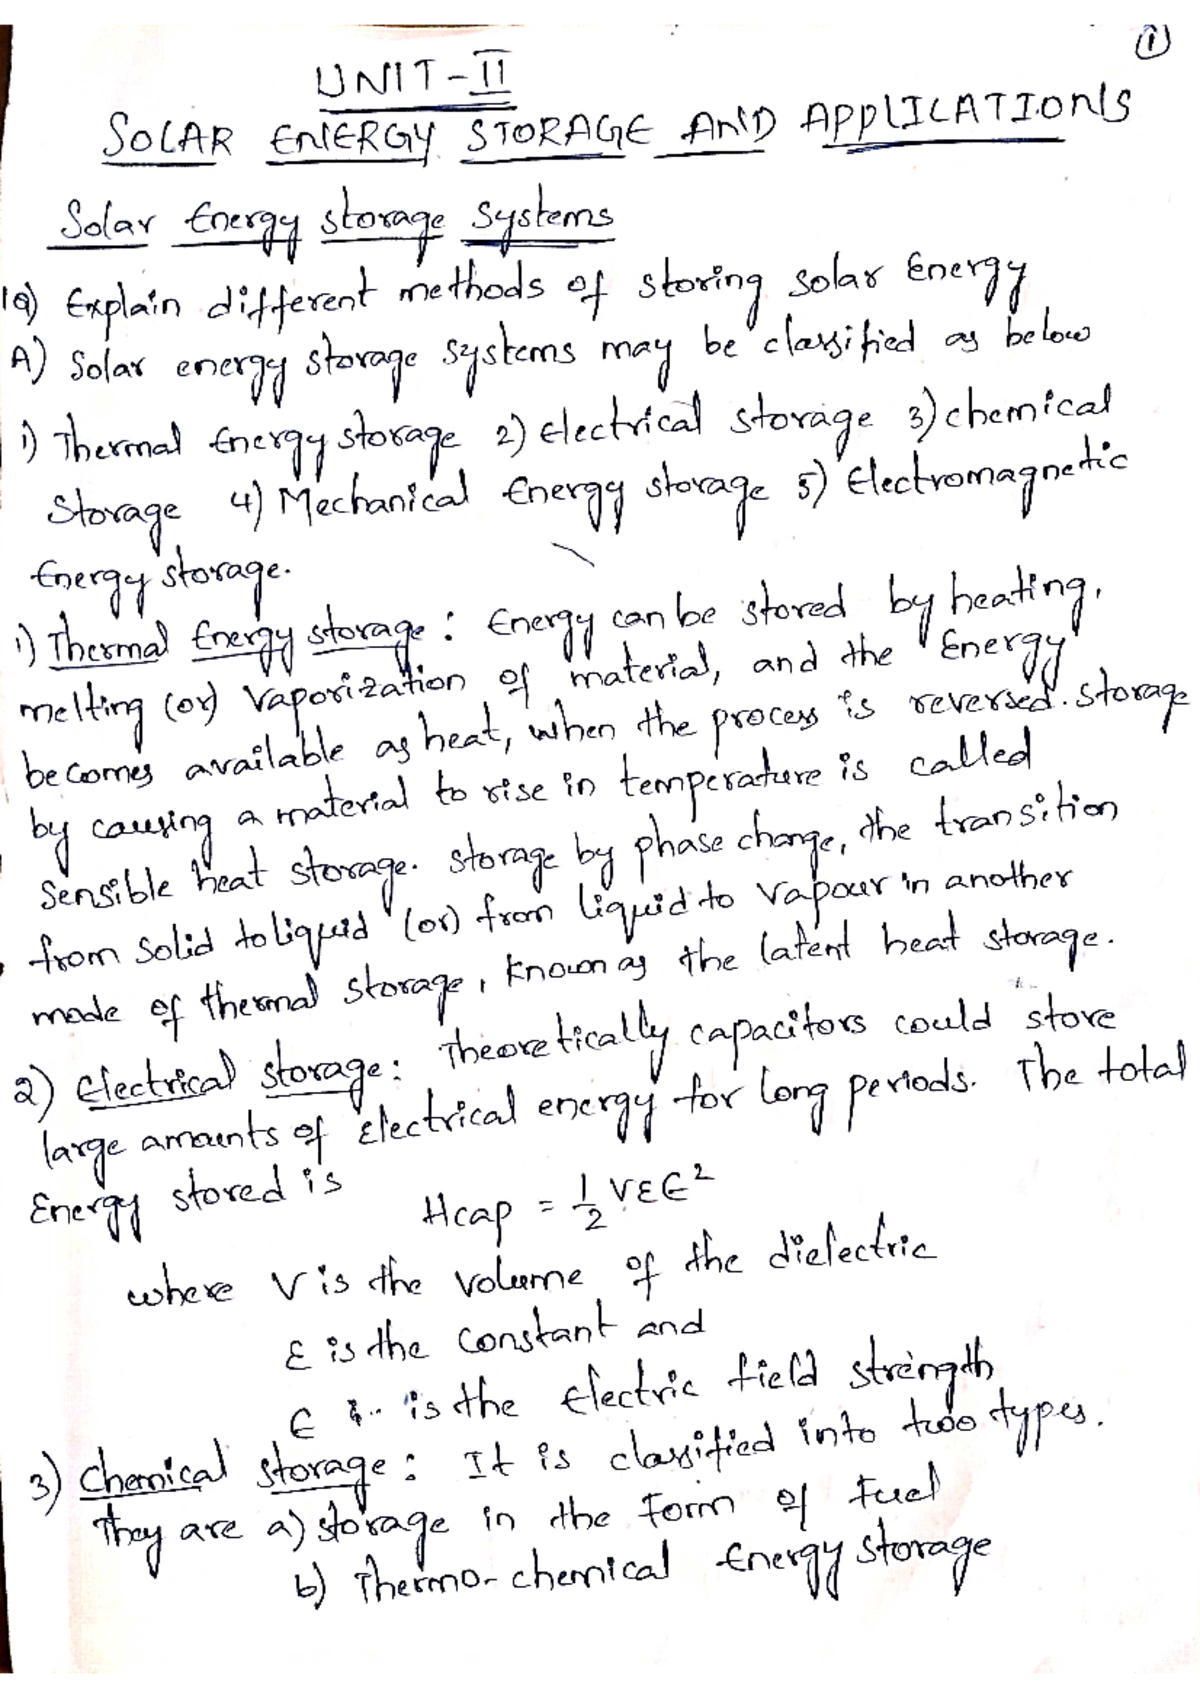 1
UNIT-II
SOLAR ENERGY STORAGE AND APPLICATIONS
Solar Energy storage systems
1Q) Explain different methods of storing solar Energy
A) Solar energy storage systems may be classified as below
1) Thermal Energy storage 2) Electrical storage 3) chemical
Storage 4) Mechanical Energy storage 5) Electromagnetic
Energy storage.
1) Thermal Energy storage : Energy can be stored by heating,
melting (or) vaporization of material, and the Energy
becomes available as heat, when the process is reversed. storage
by causing a material to rise in temperature is called
Sensible heat storage. storage by phase change, the transition
from solid to liquid (or) from liquid to vapour in another
mode of thermal storage, known as the latent heat storage.
2) Electrical storage : Theoretically capacitors could store
large amounts of Electrical energy for long periods. The total
Energy stored is
Hcap = 1/2 VƐE²
where V is the volume of the dielectric
Ɛ is the constant and
E is the Electric field strength
3) Chemical storage : It is classified into two types.
They are a) storage in the Form of Fuel
b) Thermo-chemical Energy storage